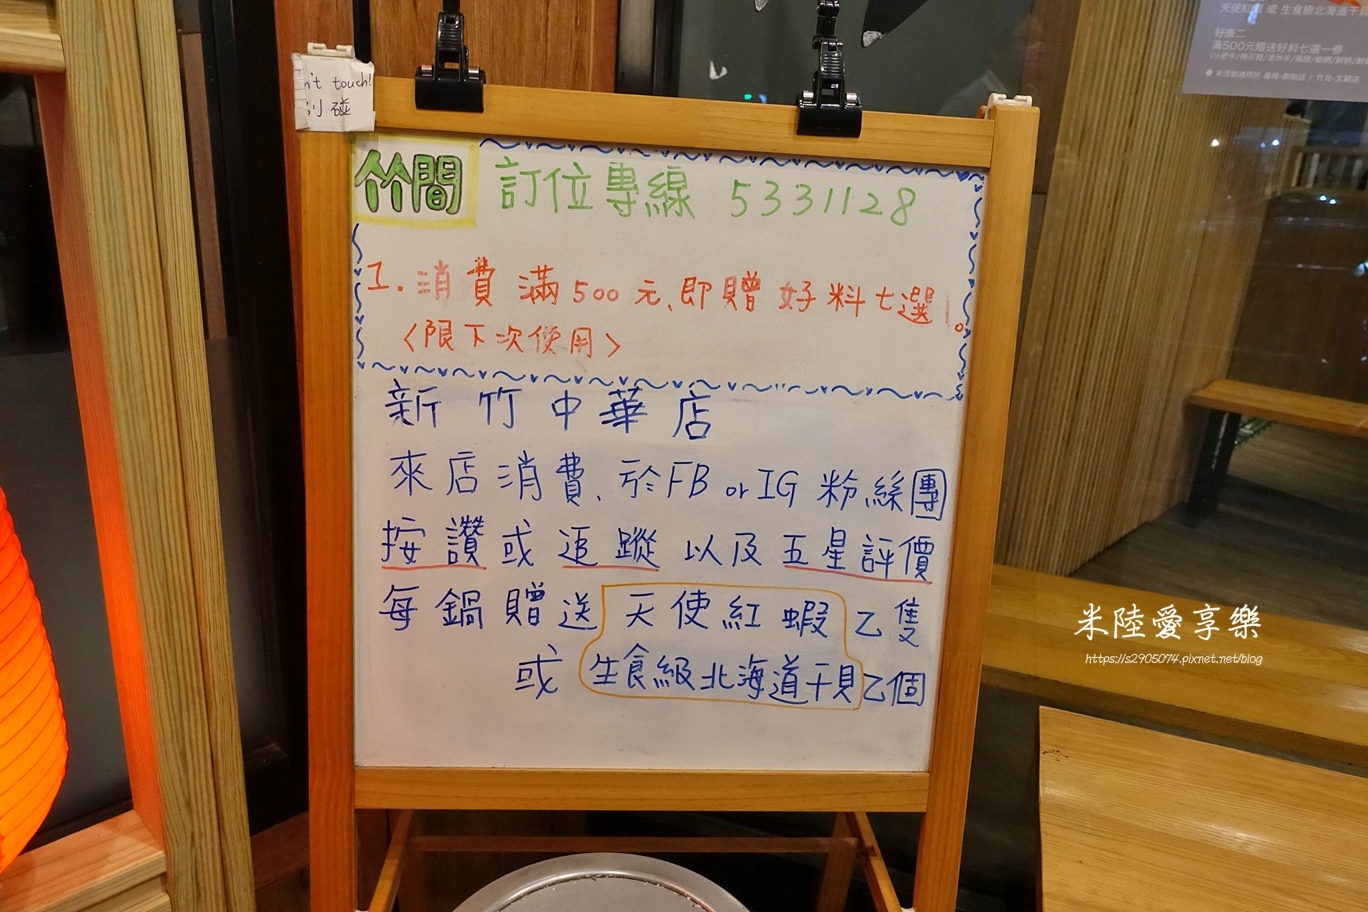 n't touch!
別碰
竹間 訂位專線 5331128
1. 消費滿500元、即贈好料七選1。
〈限下次使用〉
新竹中華店
來店消費、於FB or IG 粉絲團
按讚或追蹤以及五星評價
每鍋贈送天使紅蝦乙隻
或生食級北海道干貝乙個
天使紅蝦 或 生食級北海道干貝
好康二
滿500元贈送好料七選一券
米陸愛享樂
https://s2905074.pixnet.net/blog